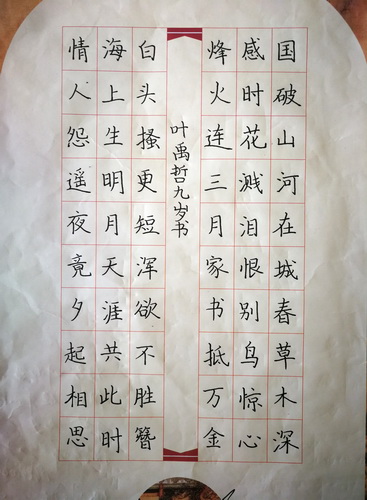 国破山河在城春草木深
感时花溅泪恨别鸟惊心
烽火连三月家书抵万金
叶禹哲九岁书
白头搔更短浑欲不胜簪
海上生明月天涯共此时
情人怨遥夜竟夕起相思